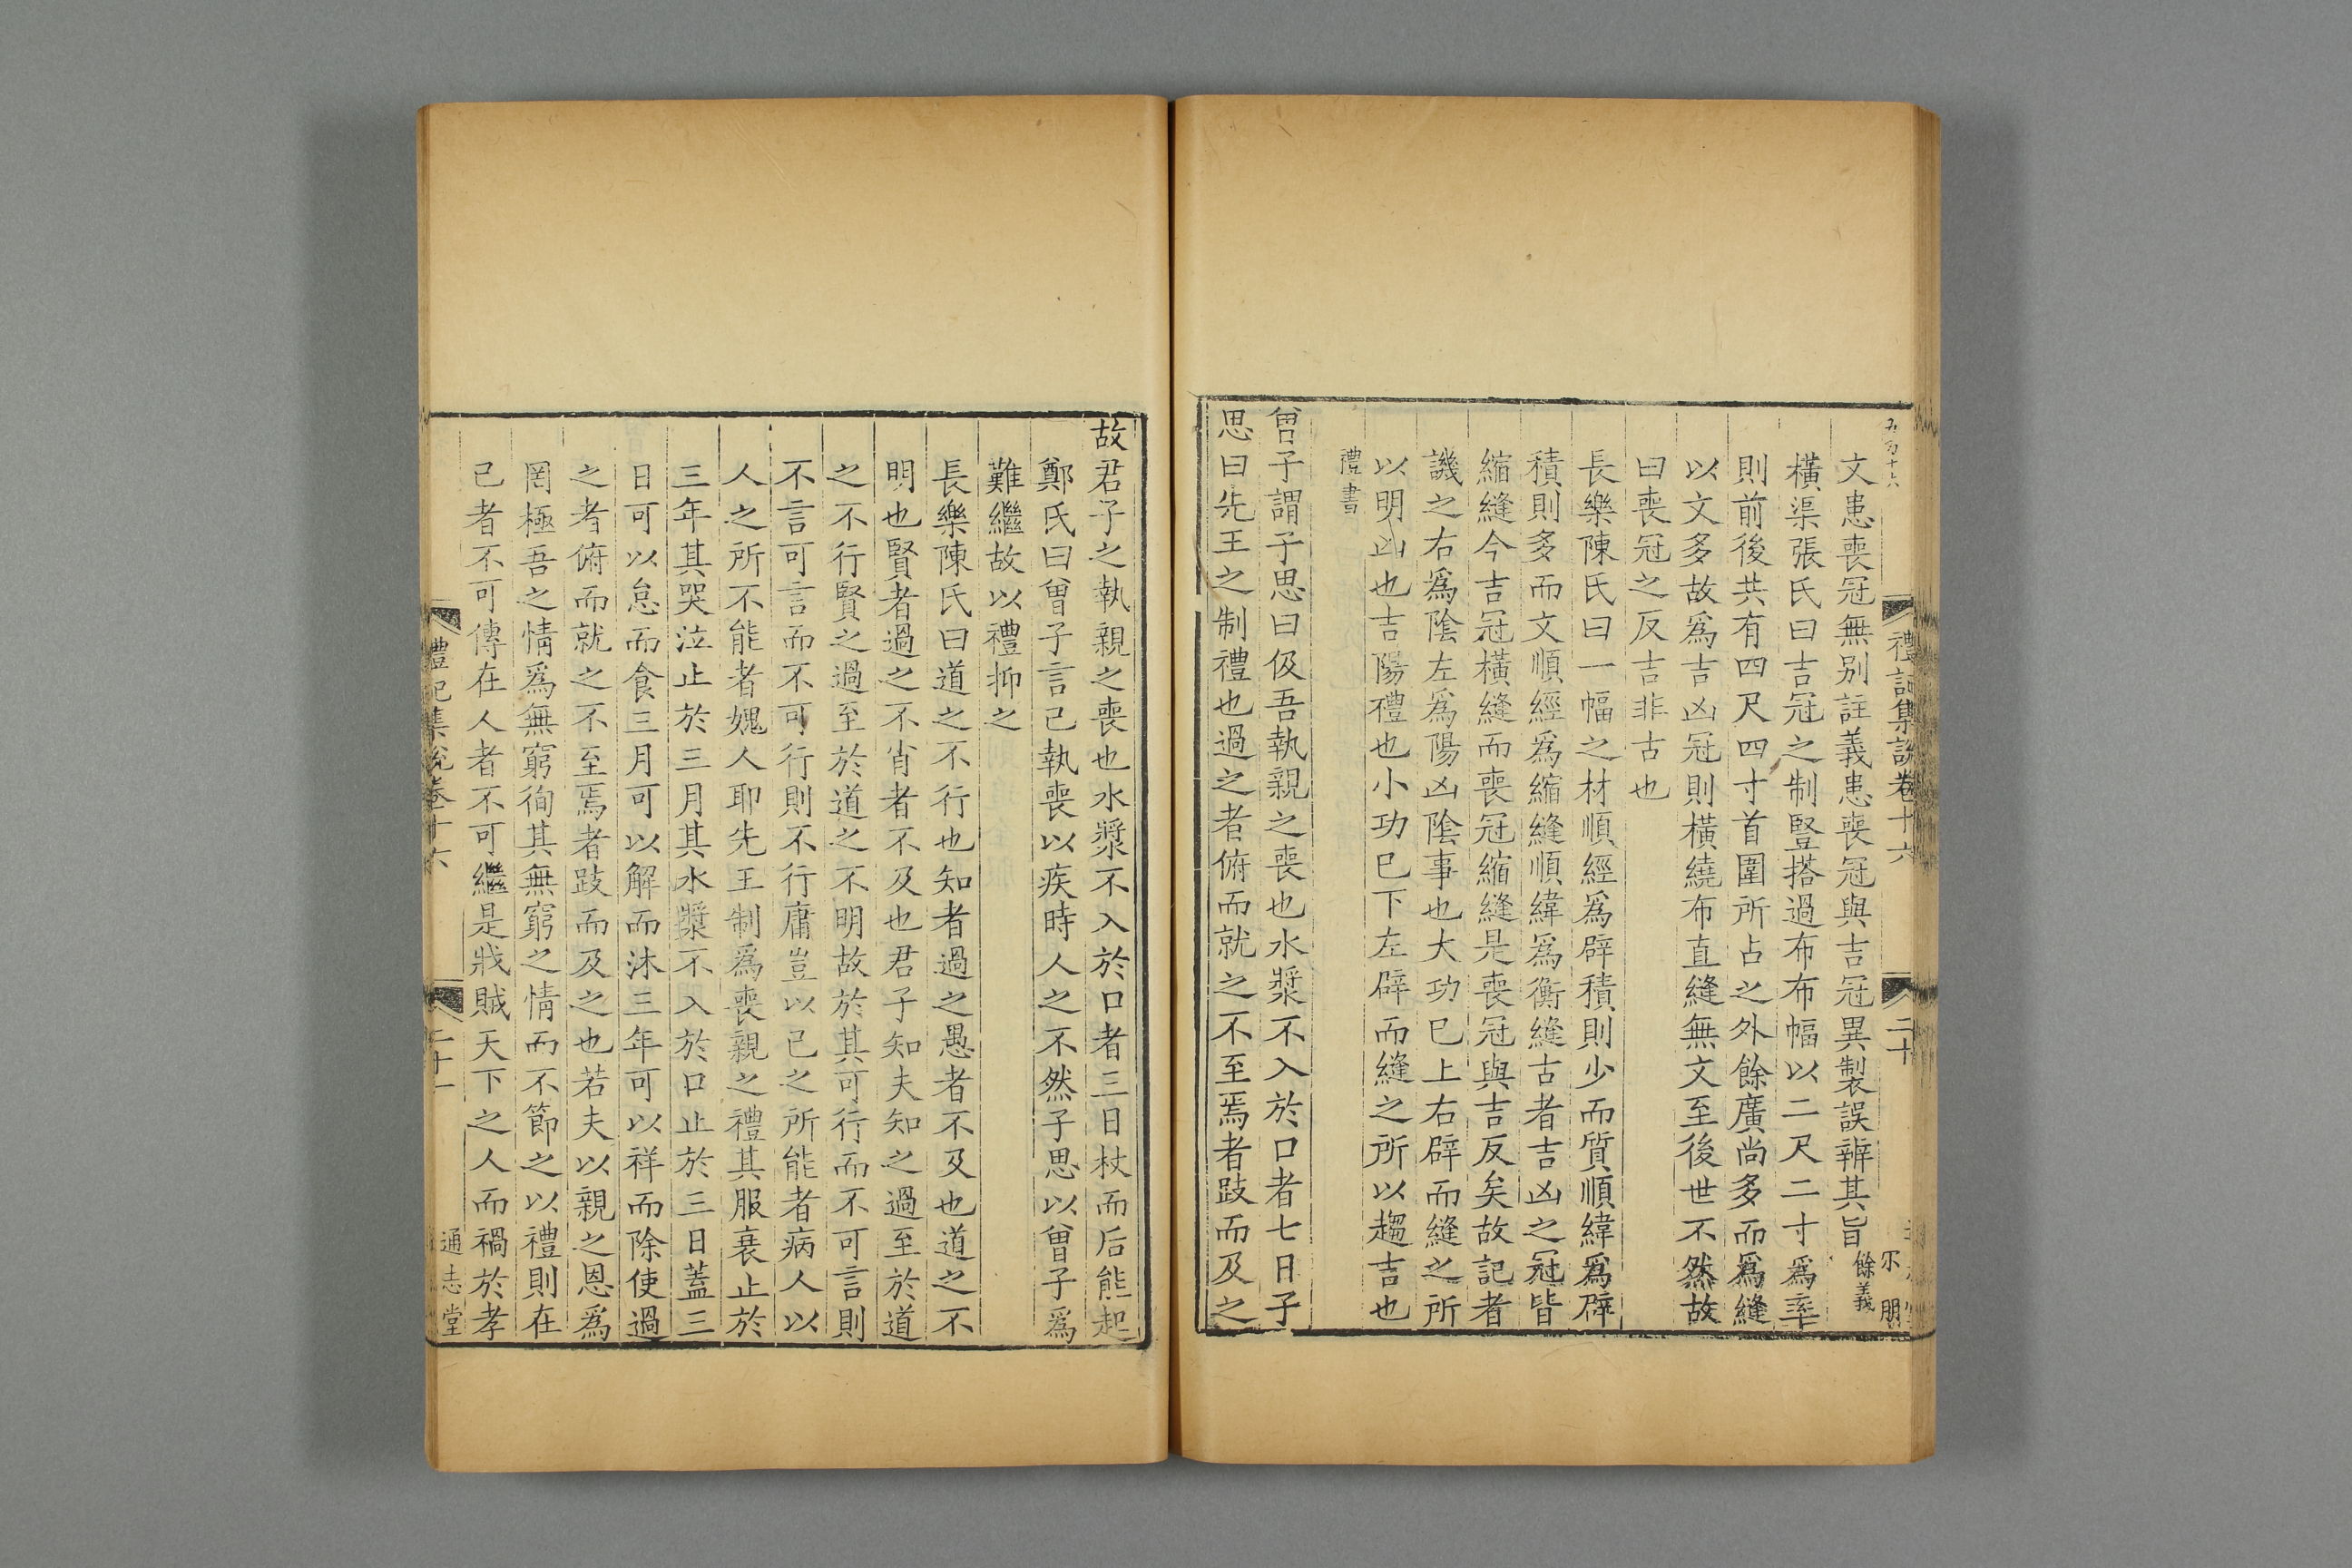 禮記集說卷十六 二十
文患喪冠無別註義患喪冠與吉冠異製誤辨其旨 餘義
橫渠張氏曰吉冠之制豎搭過布布幅以二尺二寸爲率
則前後共有四尺四寸首圍所占之外餘廣尚多而爲縫
以文多故爲吉凶冠則橫繞布直縫無文至後世不然故
曰喪冠之反吉非古也
長樂陳氏曰一幅之材順經爲辟積則少而質順緯爲辟
積則多而文順經爲縮縫順緯爲衡縫古者吉凶之冠皆
縮縫今吉冠橫縫而喪冠縮縫是喪冠與吉反矣故記者
譏之右爲陰左爲陽凶陰事也大功已上右辟而縫之所
以明凶也吉陽禮也小功已下左辟而縫之所以趨吉也
禮書
曾子謂子思曰伋吾執親之喪也水漿不入於口者七日子
思曰先王之制禮也過之者俯而就之不至焉者跂而及之
故君子之執親之喪也水漿不入於口者三日杖而后能起
鄭氏曰曾子言己執喪以疾時人之不然子思以曾子爲
難繼故以禮抑之
長樂陳氏曰道之不行也知者過之愚者不及也道之不
明也賢者過之不肖者不及也君子知夫知之過至於道
之不行賢之過至於道之不明故於其可行而不可言則
不言可言而不可行則不行庸豈以己之所能者病人以
人之所不能者媿人耶先王制爲喪親之禮其服衰止於
三年其哭泣止於三月其水漿不入於口止於三日蓋三
日可以怠而食三月可以解而沐三年可以祥而除使過
之者俯而就之不至焉者跂而及之也若夫以親之恩爲
罔極吾之情爲無窮徇其無窮之情而不節之以禮則在
己者不可傳在人者不可繼是戕賊天下之人而禍於孝
禮記集說卷十六 二十一 通志堂